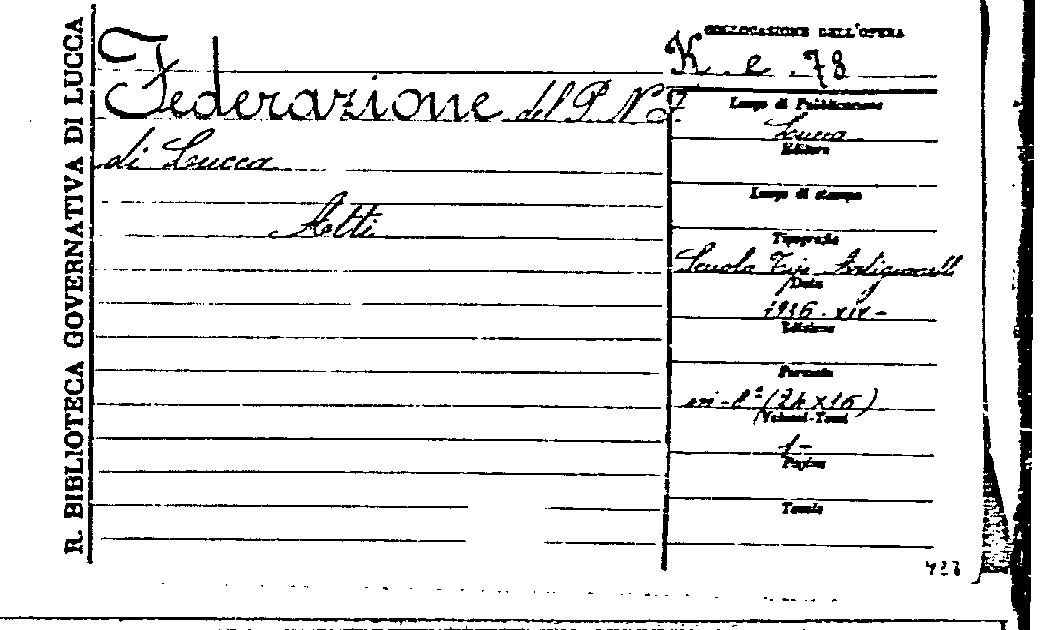 R. BIBLIOTECA GOVERNATIVA DI LUCCA
Federazione del P. N. F.
di Lucca
Atti
COLLOCAZIONE DELL'OPERA
K. e. 78
Luogo di Pubblicazione
Lucca
Editore
Luogo di stampa
Tipografia
Scuola Tip. Artigianelli
Data
1936. XIV-
Edizione
Formato
in-8º (24 x 16)
Volumi-Tomi
1-
Pagine
Tavole